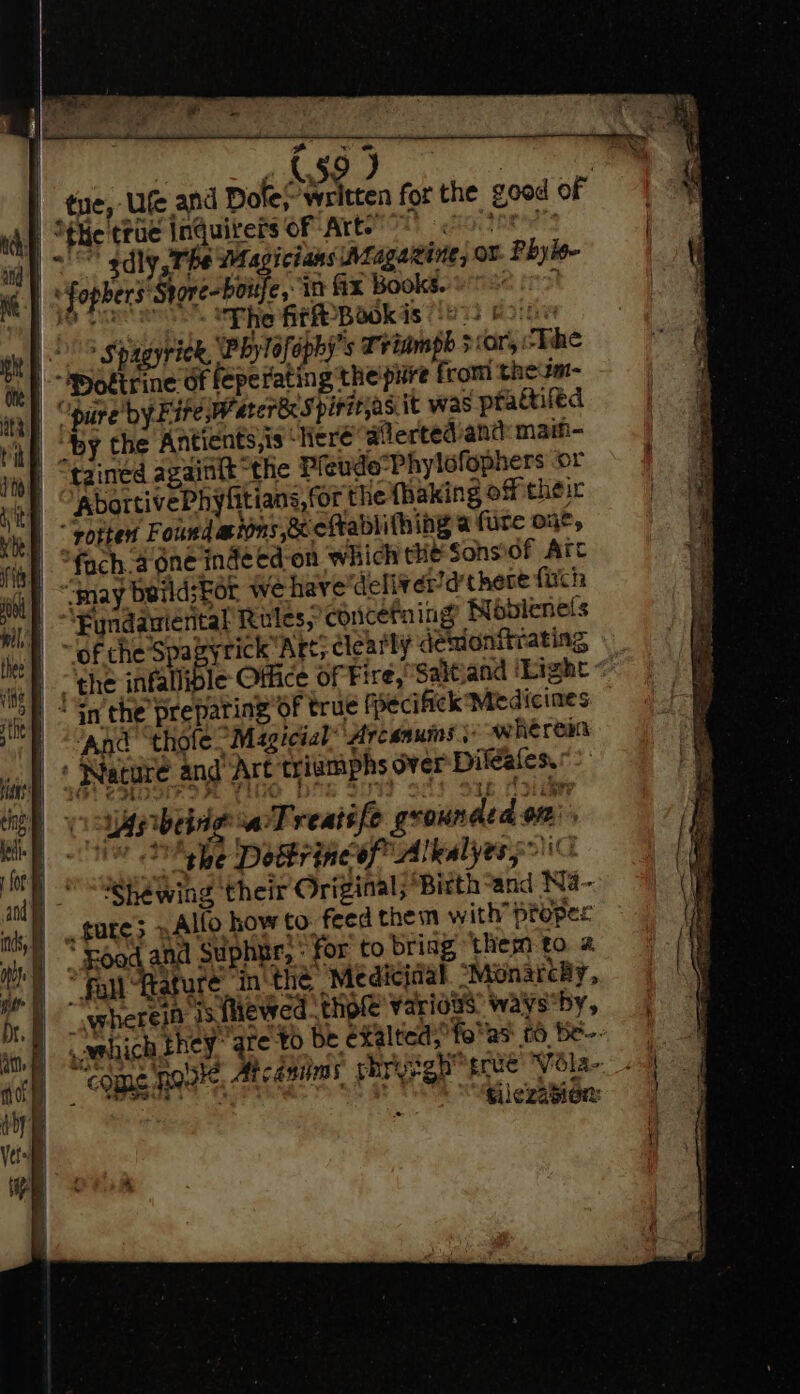 (59)
tue, Uſe and Doſe, written for the good of
the true Inquirers of Art.
3dly, The Magicians Magazine, or Phylo-
ſophers Store-houſe, in ſix Books.
The firſt Book is
Spagyrick Phyloſophy's Triumph; or, The
Doctrine of ſeperating the pure from the im-
pure by Fire, Water & Spirit, as it was practiſed
by the Antients, is here aſſerted and main-
tained againſt the Pſeudo Phyloſophers or
Abortive Phyſitians, for the ſhaking off their
rotten Foundations, & eſtabliſhing a ſure one,
ſuch a one indeed on which the Sons of Art
may build; For we have deliver'd there ſuch
Fundamental Rules, concerning Nobleneſs
of the Spagyrick Art; clearly demonſtrating
the infallible Office of Fire, Salt, and Light
in the preparing of true ſpecifick Medicines
And thoſe Magicial Arcanums; wherein
Nature and Art triumphs over Diſeaſes.
As being a Treatiſe grounded on
the Doctrine of Alkalyes,
Shewing their Original; Birth and Na-
ture; Alſo how to feed them with proper
Food and Suphur, for to bring them to a
full ſtature in the Medicinal Monarchy,
wherein is ſhewed thoſe various ways by,
which they are to be exalted, ſo as to be-
come noble Arcanums through true Vola-
tilezation